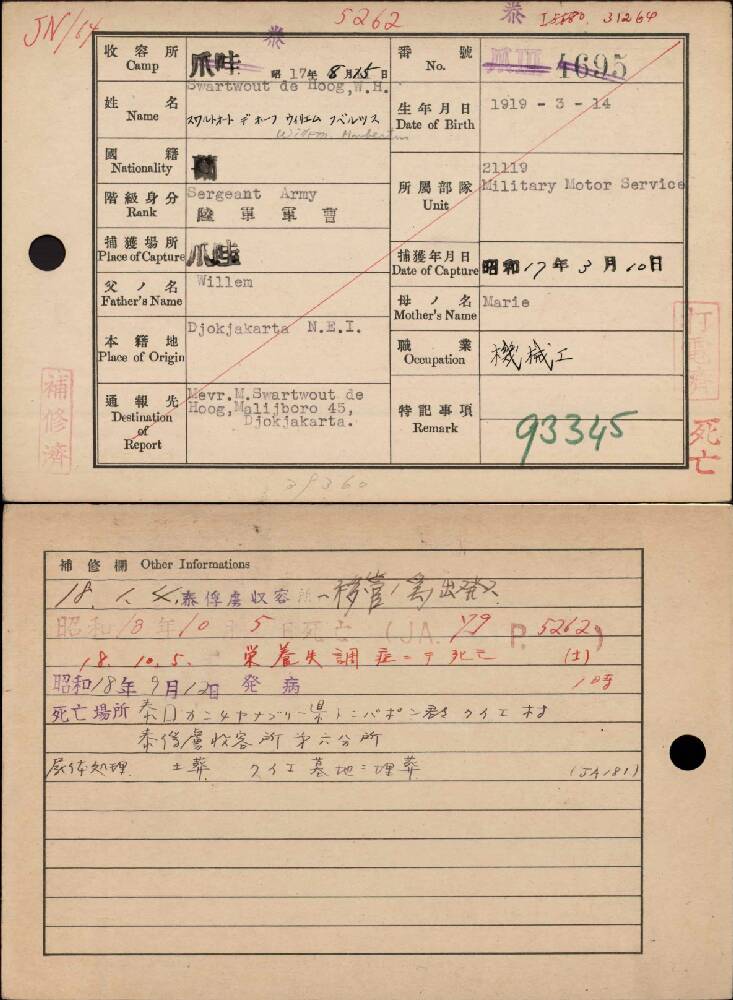 JN/14
5262
泰
泰
31264
收容所 Camp
爪哇
昭17年8月15日
番號 No.
爪III 4695
姓名 Name
Swartwout de Hoog, W.H.
スワルトオート デ ホーフ ウィリエム フベルツス
生年月日 Date of Birth
1919 - 3 - 14
國籍 Nationality
蘭
階級身分 Rank
Sergeant Army
陸軍軍曹
所屬部隊 Unit
21119
Military Motor Service
捕獲場所 Place of Capture
爪哇
捕獲年月日 Date of Capture
昭和17年3月10日
父ノ名 Father's Name
Willem
母ノ名 Mother's Name
Marie
本籍地 Place of Origin
Djokjakarta N.E.I.
職業 Occupation
機械工
通報先 Destination of Report
Mevr.M.Swartwout de
Hoog, Malijboro 45,
Djokjakarta.
特記事項 Remark
93345
補修濟
打電済
死亡
29360
補修欄 Other Informations
18.1.4.泰俘虜収容所ヘ移管ノ為出発ス
昭和18年10月5日死亡 (JA.79 P.5262)
18.10.5. 栄養失調症ニテ死亡 (土)
昭和18年9月12日 発病
死亡場所 泰国カンチヤナブリー県
泰俘虜收容所第六分所
屍体処理 土葬 クイエ墓地ニ埋葬 (JA181)